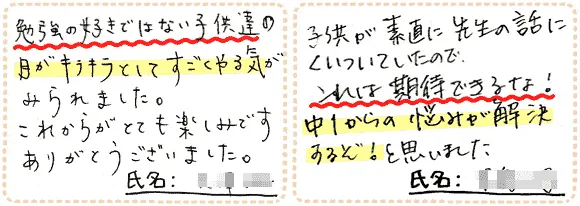 勉強の好きではない子供達の
目がキラキラとしてすごくやる気が
みられました。
これからがとても楽しみです
ありがとうございました。
氏名:
子供が素直に先生の話に
くいついていたので、
これは期待できるな!
中1からの悩みが解決
するぞ!と思いました
氏名: